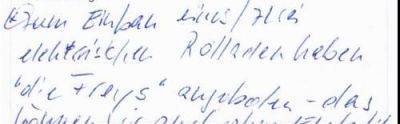 Zum Einbau eines/zwei
elektrischen Rolladen haben
"die Freys" angeboten - das
können